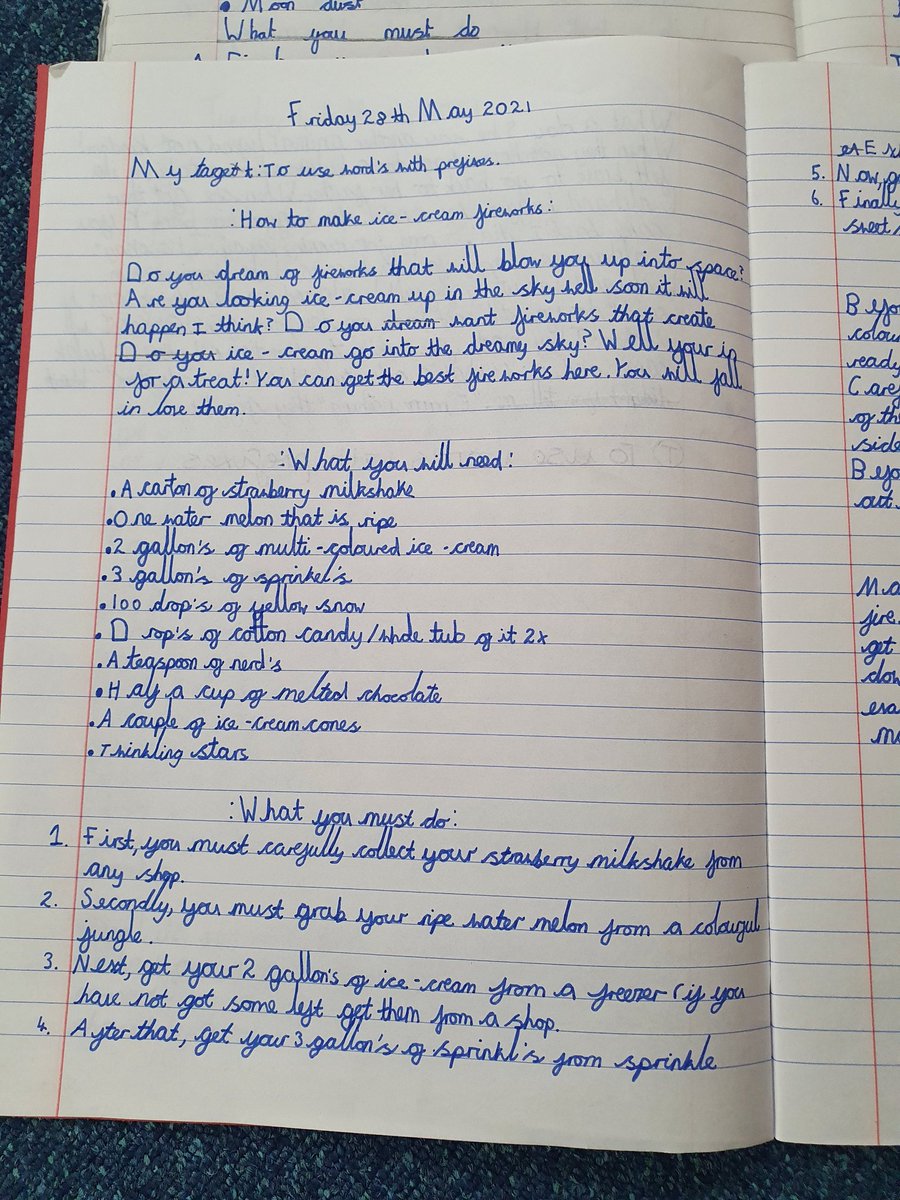 • Moon dust
What you must do
Friday 28th May 2021
My tagett: To use word's with prefixes.
:How to make ice-cream fireworks:
Do you dream of fireworks that will blow you up into space?
Are you looking ice-cream up in the sky well soon it will
happen I think? Do you dream want fireworks that create
Do you ice-cream go into the dreamy sky? Well your in
for a treat! You can get the best fireworks here. You will fall
in love them.
:What you will need:
•A carton of strawberry milkshake
•One water melon that is ripe
•2 gallon's of multi-coloured ice-cream
•3 gallon's of sprinkel's
•100 drop's of yellow snow
•Drop's of cotton candy/whole tub of it 2x
•A teaspoon of nerd's
•Half a cup of melted chocolate
•A couple of ice-cream cones
•Thinkling stars
:What you must do:
1. First, you must carefully collect your strawberry milkshake from
any shop.
2. Secondly, you must grab your ripe water melon from a colourful
jungle.
3. Next, get your 2 gallon's of ice-cream from a freezer (if you
have not got some left get them from a shop.
4. After that, get your 3 gallon's of sprinkl's from sprinkle
5. Now, g
6. Finally
sweet
Beyo
colou
ready
Care
of th
side
Beyo
out.
fire.
get
dow